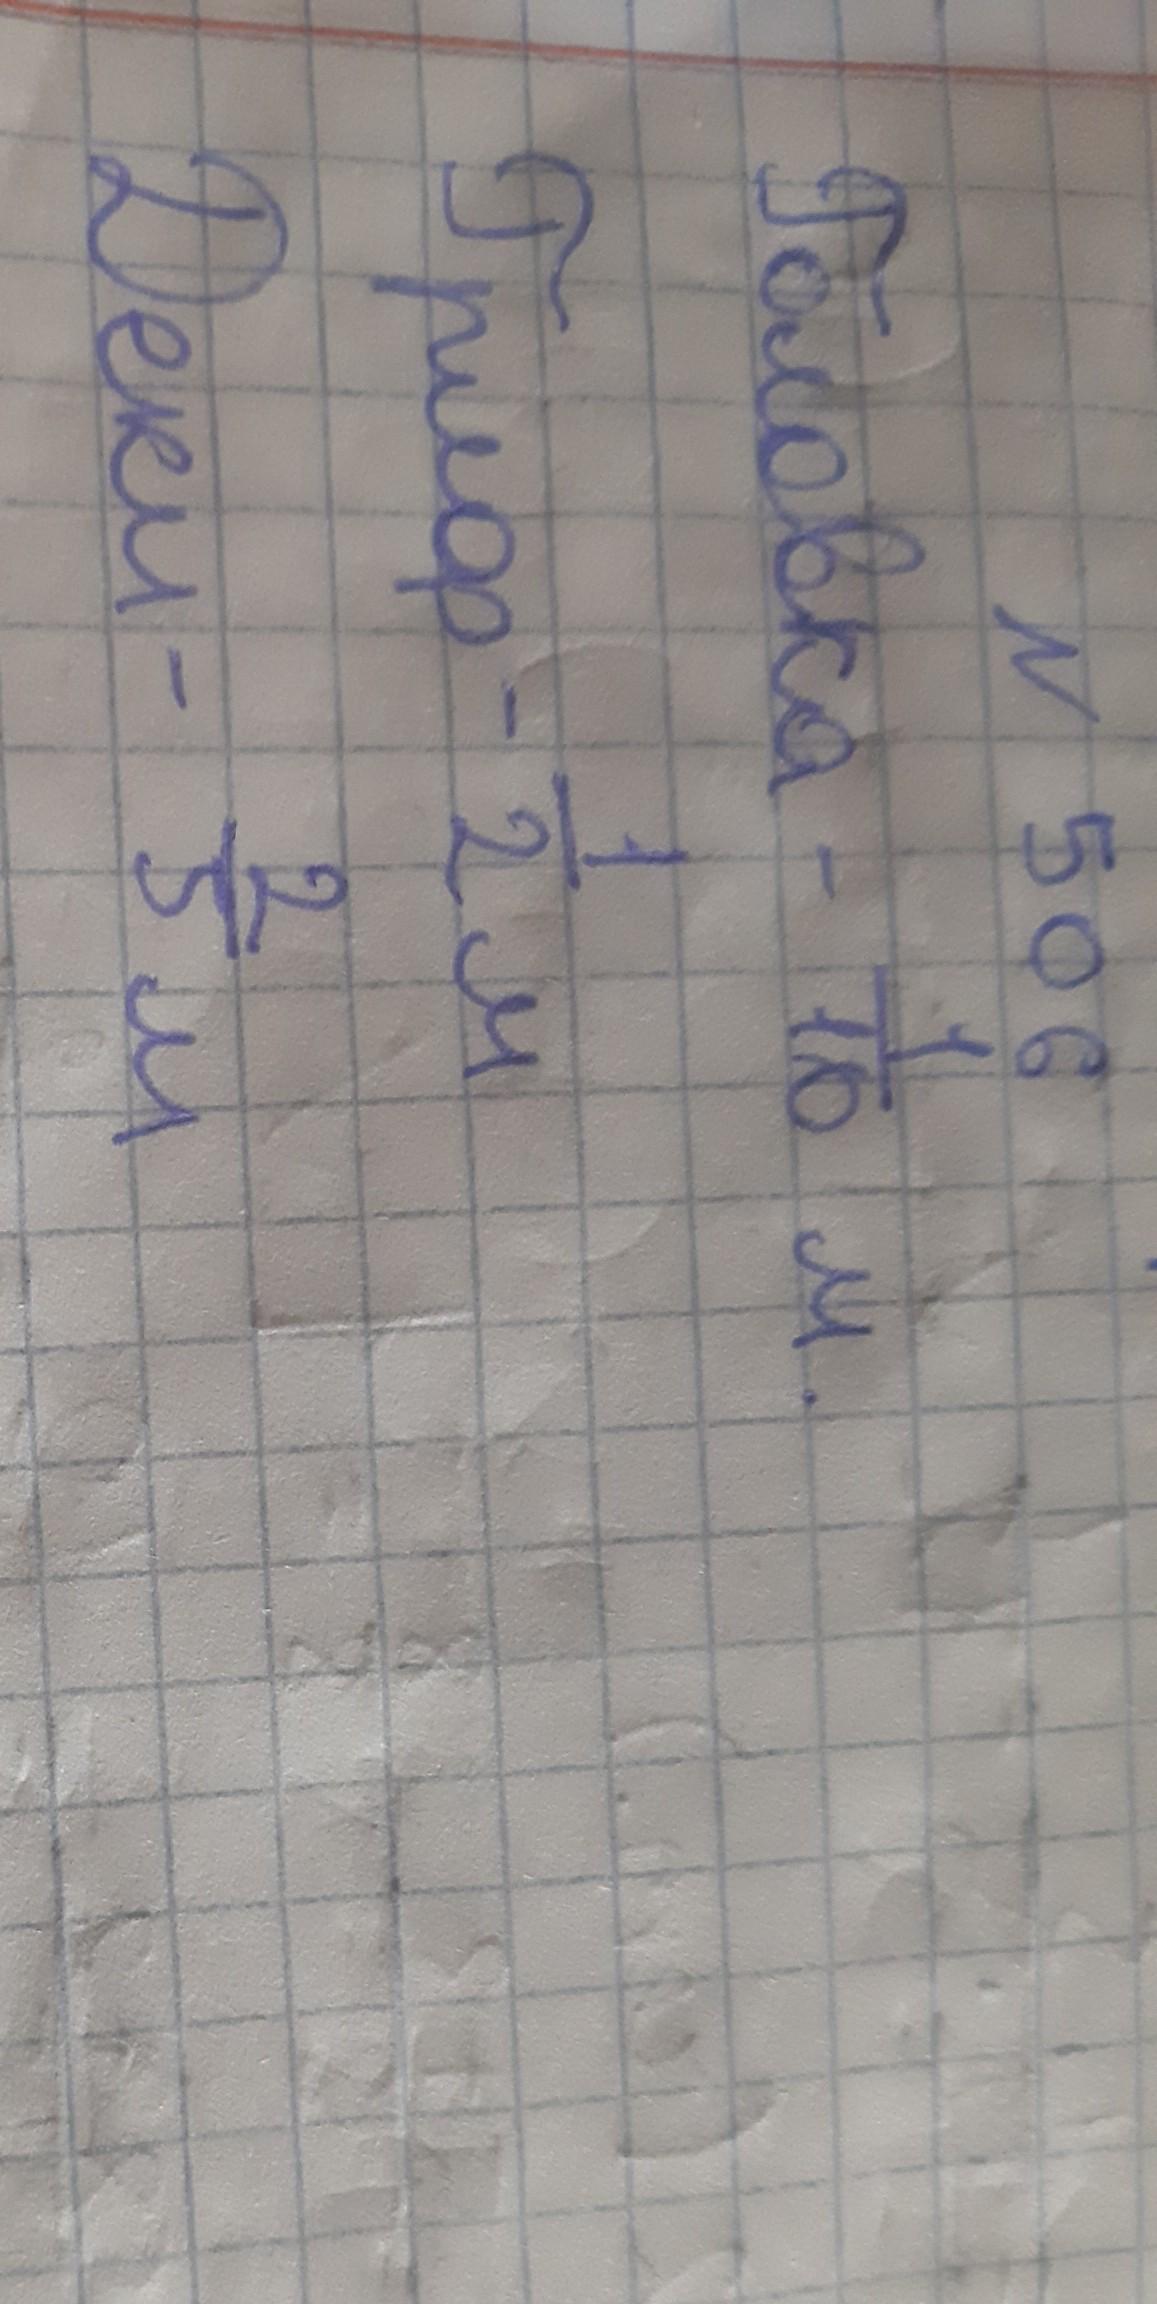 N 506
Головка - 1/10 м.
Гриф - 1/2 м
Деки - 2/5 м